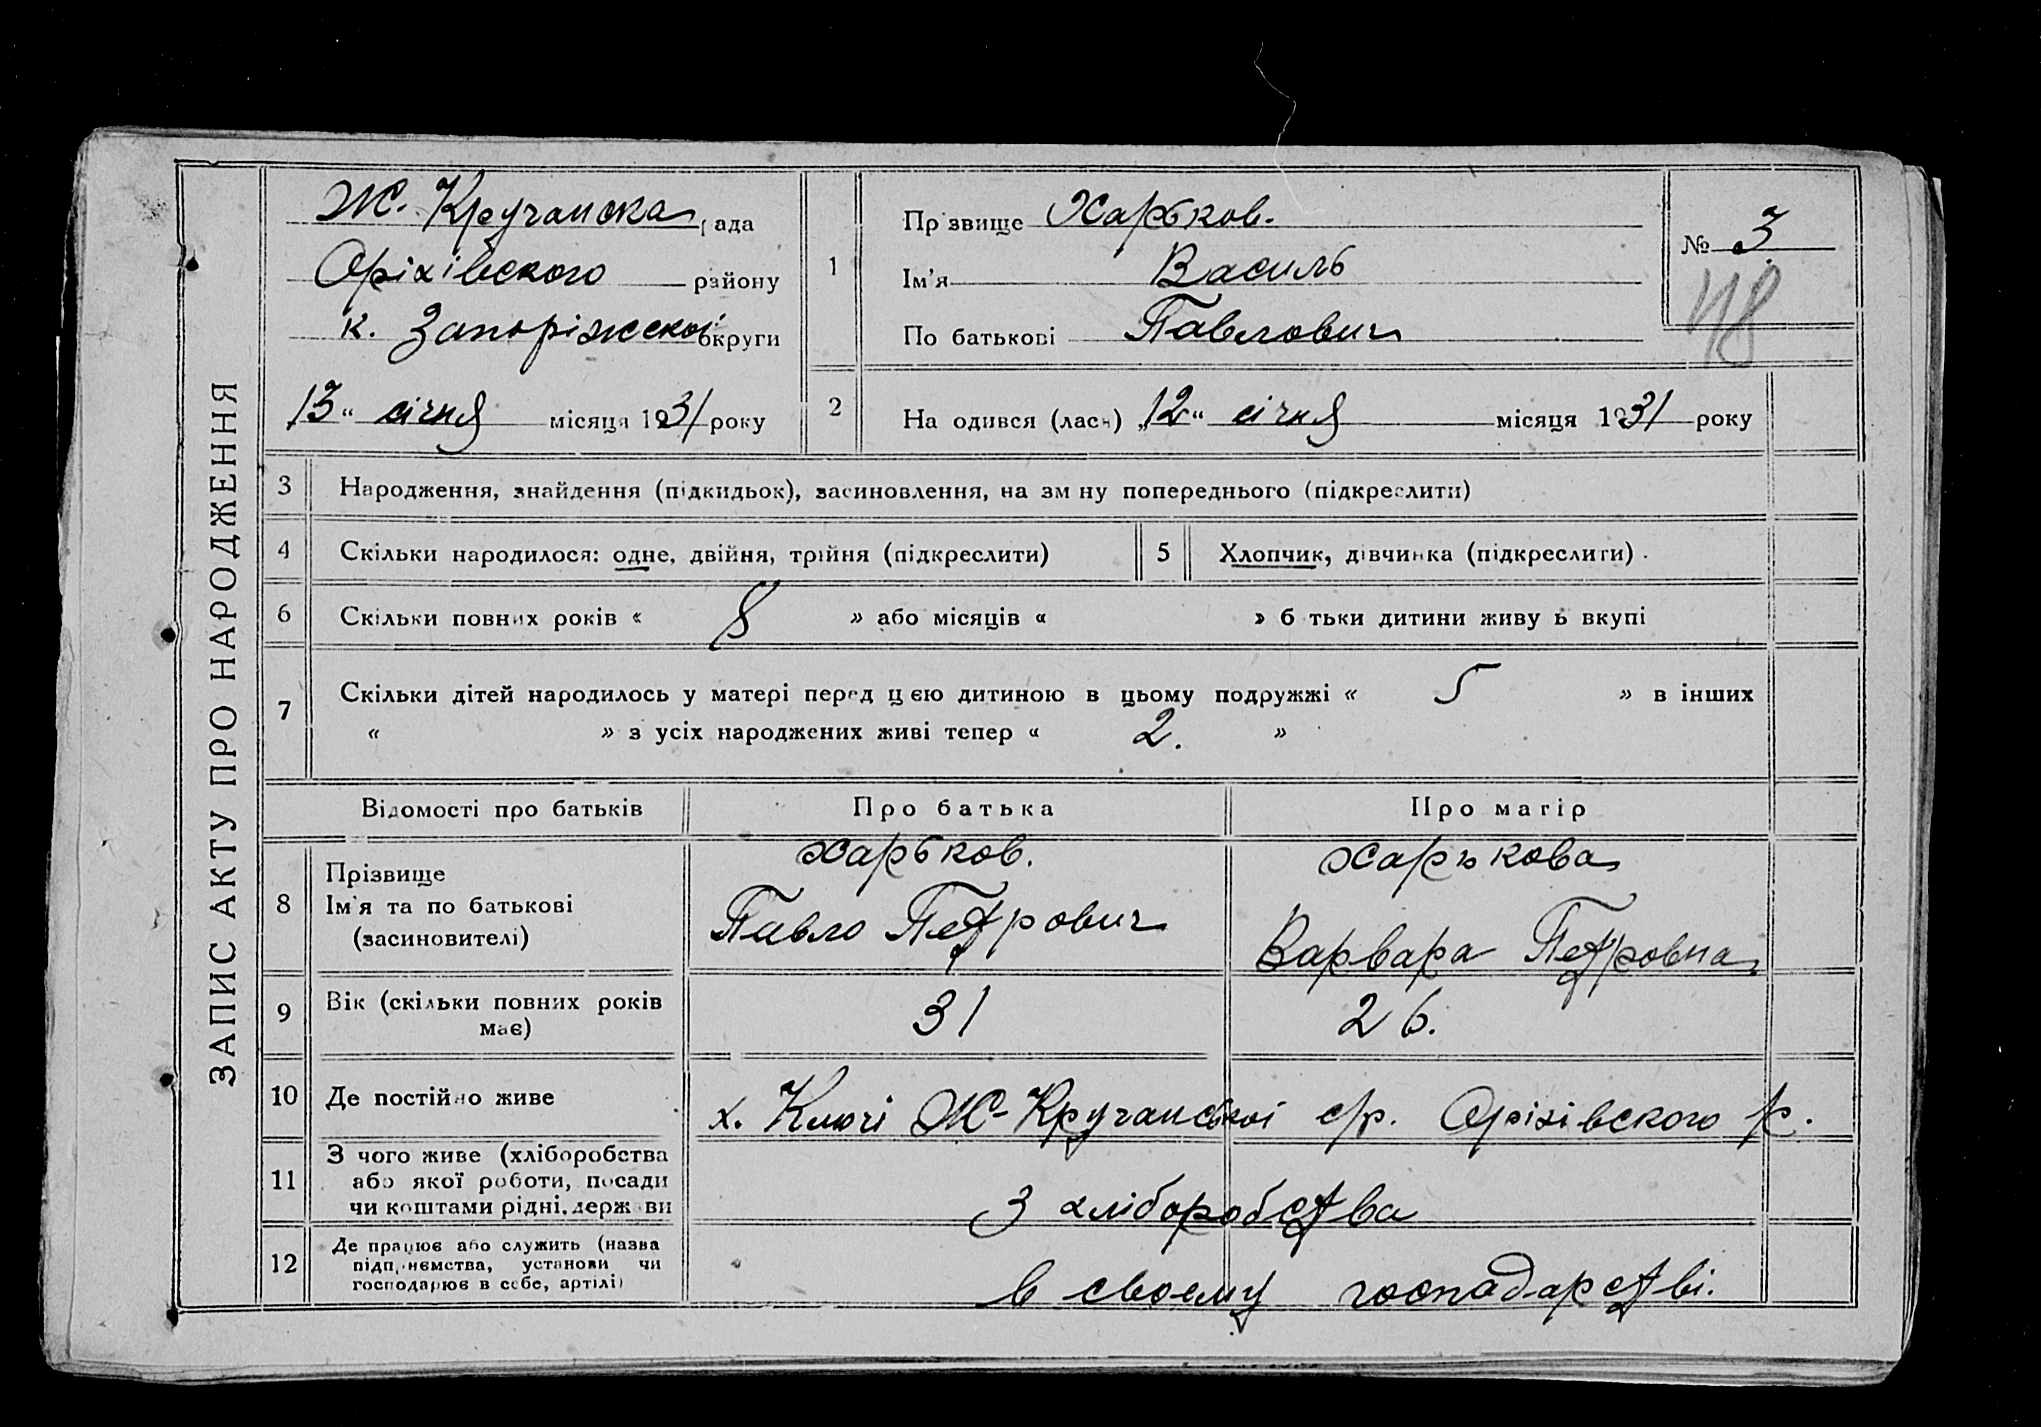 ЗАПИС АКТУ ПРО НАРОДЖЕННЯ
Ж. Кручанска рада
Оріхівського району
к. Запоріжської округи
13 " січня місяця 1931 року
1
Прізвище Харьков.
Ім'я Василь
По батькові Павлович
№ 3
48
2
На одився (лася) „12 " січня місяця 1931 року
3 Народження, знайдення (підкидьок), засиновлення, на зміну попереднього (підкреслити)
4 Скільки народилося: одне, двійня, трійня (підкреслити)
5 Хлопчик, дівчинка (підкреслити)
6 Скільки повних років « 8 » або місяців « » б тьки дитини живу ь вкупі
7 Скільки дітей народилось у матері перед цією дитиною в цьому подружжі « 5 » в інших
« » з усіх народжених живі тепер « 2. »
Відомості про батьків Про батька Про матір
8 Прізвище
Ім'я та по батькові
(засиновителі)
Харьков.
Павло Петрович
Харькова
Варвара Петровна
9 Вік (скільки повних років
має)
31
26.
10 Де постійно живе
х. Ключі Ж-Кручанської с/р. Оріхівского р.
11 З чого живе (хліборобства
або якої роботи, посади
чи коштами рідні, держави
З хліборобства
12 Де працює або служить (назва
підприємства, установи чи
господарює в себе, артілі)
в своему господарстві.